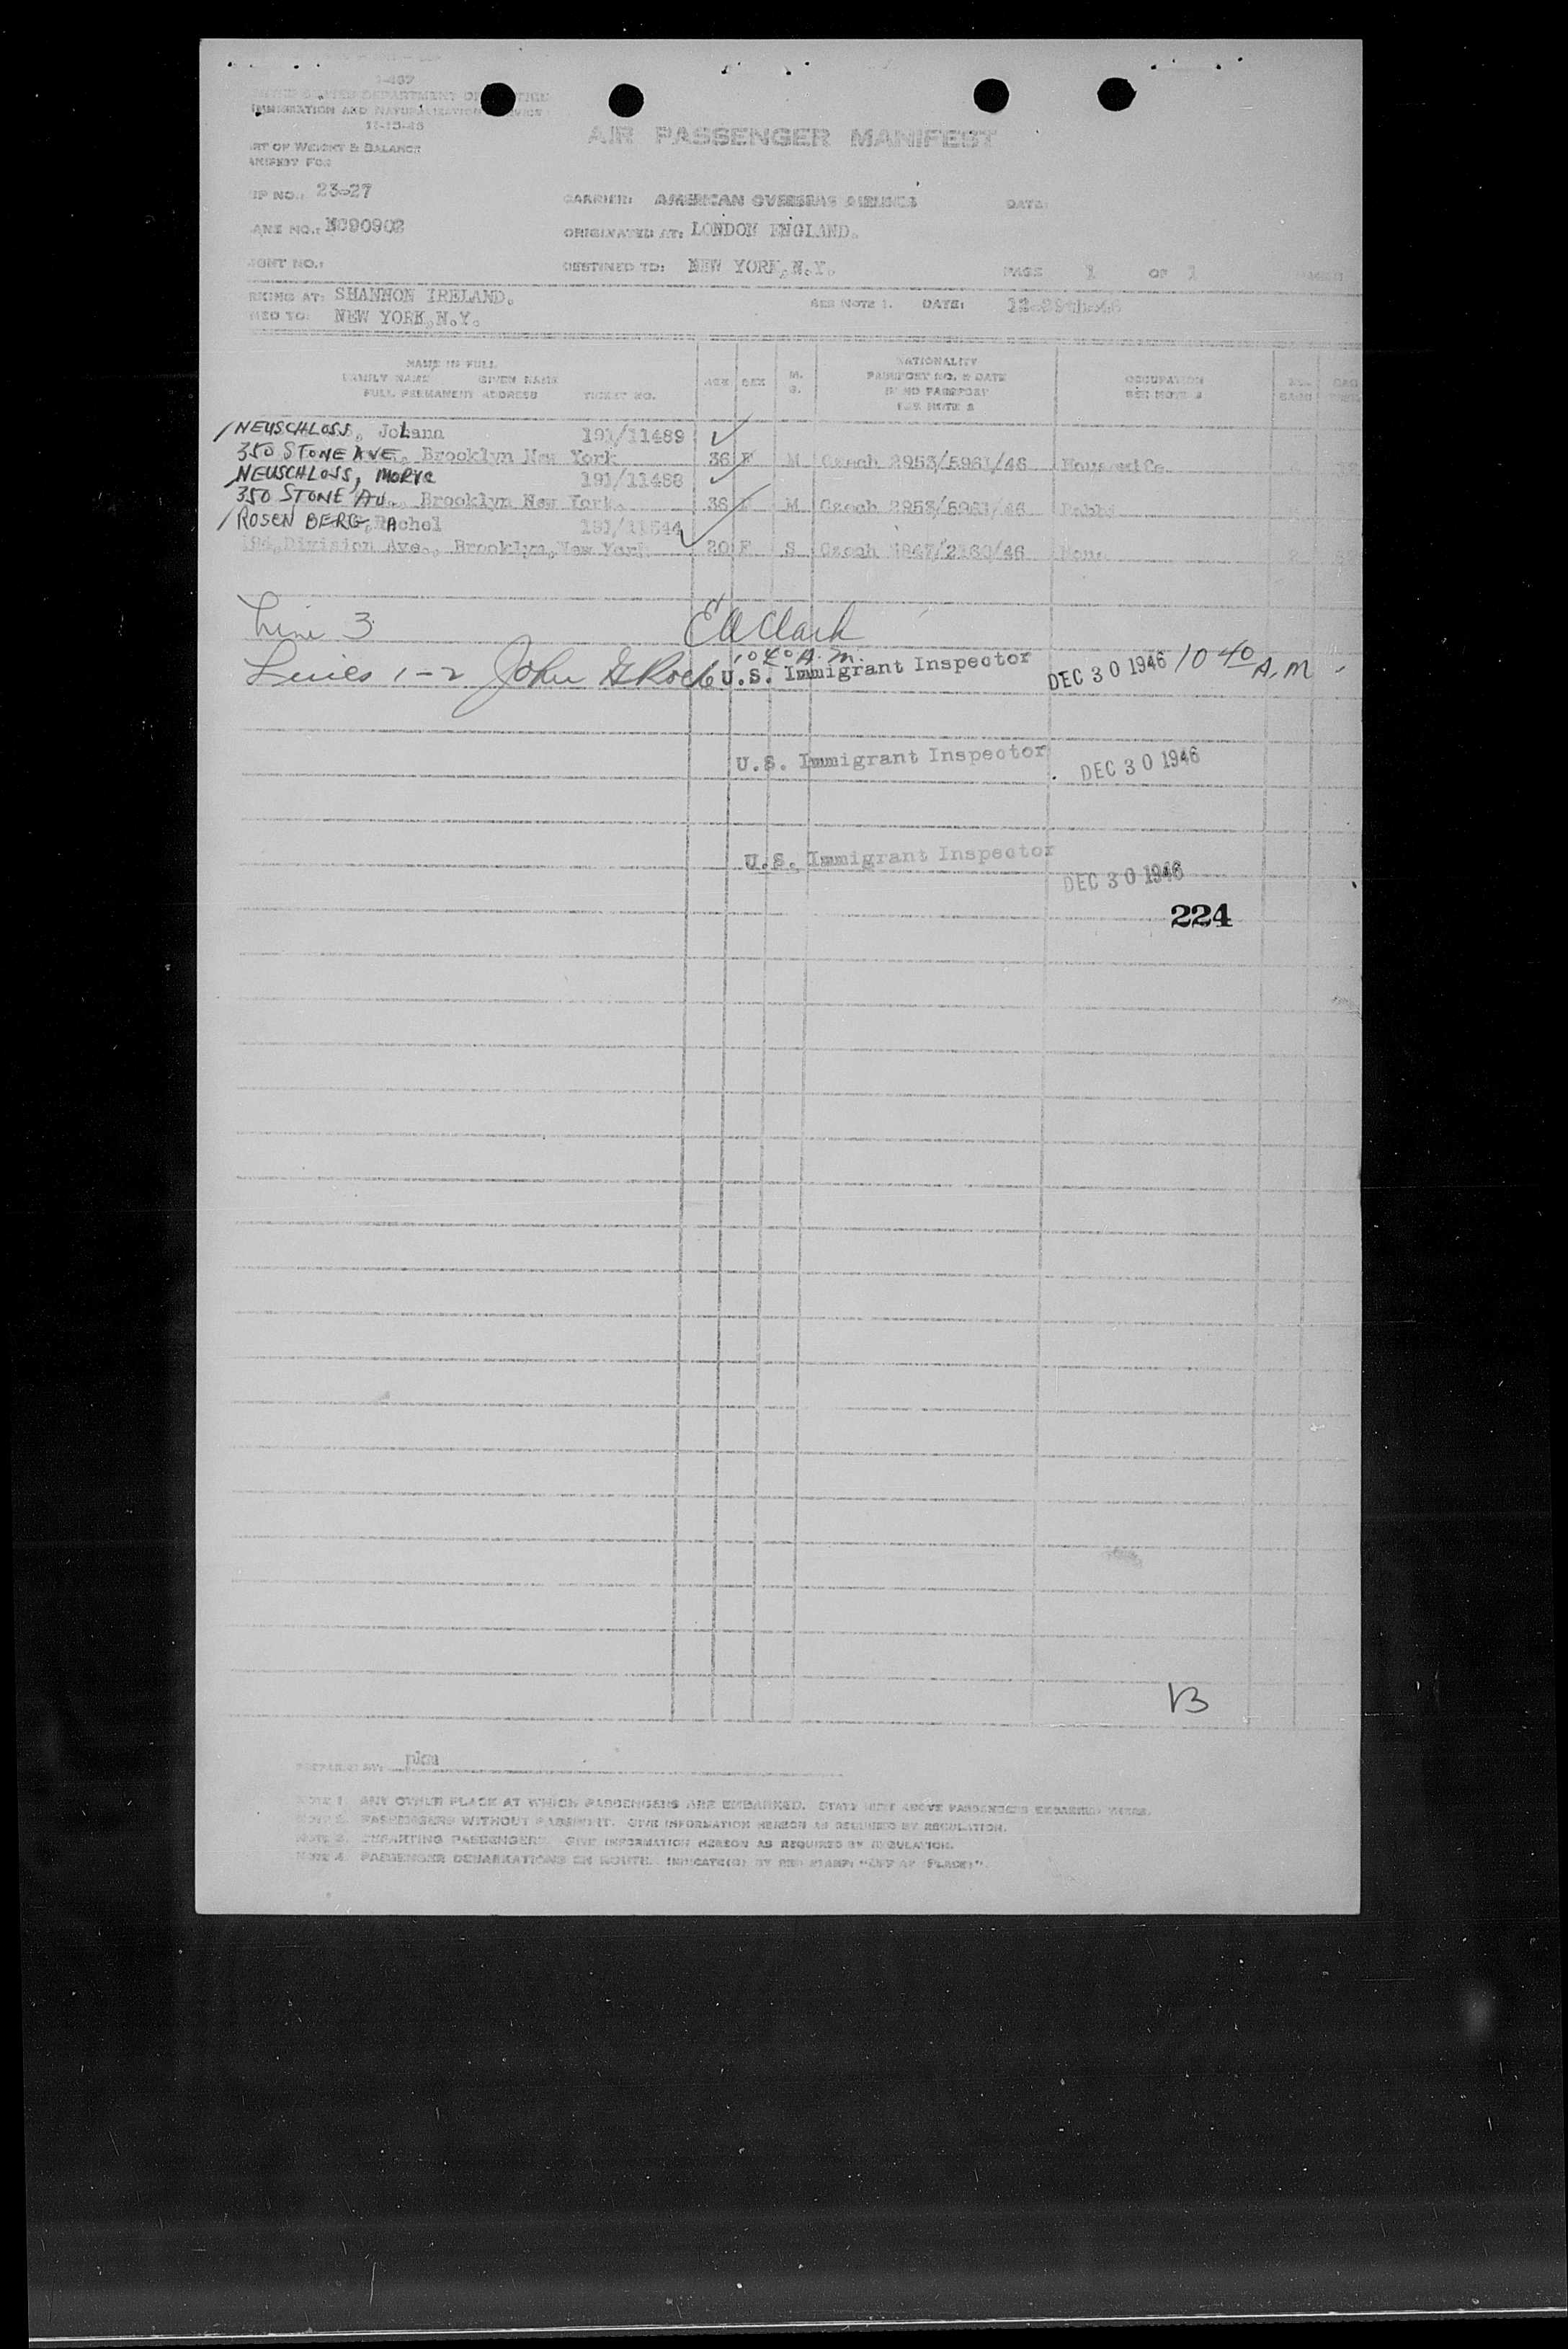 I-467
UNITED STATES DEPARTMENT OF JUSTICE
IMMIGRATION AND NATURALIZATION SERVICE
11-15-45
AIR PASSENGER MANIFEST
RT OF WEIGHT & BALANCE
ANIFEST FOR
IP NO.: 23-27
CARRIER: AMERICAN OVERSEAS AIRLINES
DATE:
ANE NO.: NC90902
ORIGINATED AT: LONDON ENGLAND.
IGHT NO.:
DESTINED TO: NEW YORK, N.Y.
PAGE 1 OF 1
RKING AT: SHANNON IRELAND.
SEE NOTE 1. DATE: 12-29th-46
NED TO: NEW YORK, N.Y.
NAME IN FULL
FAMILY NAME GIVEN NAME
FULL PERMANENT ADDRESS
TICKET NO.
AGE
SEX
M.
S.
NATIONALITY
PASSPORT NO. & DATE
IF NO PASSPORT
SEE NOTE 2
OCCUPATION
SEE NOTE 3
NEUSCHLOSS, Johana 191/11489
350 STONE AVE, Brooklyn New York 36 F M Czech 2953/5961/46 Housewife
NEUSCHLOSS, MORYC 191/11488
350 STONE AV. Brooklyn New York. 38 M Czech 2953/5961/46 Rabbi
ROSENBERG, RAchel 191/11544
184, Division Ave., Brooklyn, New York 20 F S Czech /2160/46 None
Line 3 E A Clark
10 40 A.M.
Lines 1-2 John G Rock U.S. Immigrant Inspector DEC 30 1946 10 40 A.M.
U.S. Immigrant Inspector DEC 30 1946
U.S. Immigrant Inspector
DEC 30 1946
224
13
PREPARED BY: pkm
NOTE 1. ANY OTHER PLACE AT WHICH PASSENGERS ARE EMBARKED. STATE NEXT ABOVE PASSENGERS EMBARKED THERE.
NOTE 2. PASSENGERS WITHOUT PASSPORT. GIVE INFORMATION HEREON AS REQUIRED BY REGULATION.
NOTE 3. DEPARTING PASSENGERS. GIVE INFORMATION HEREON AS REQUIRED BY REGULATION.
NOTE 4. PASSENGER DEBARKATIONS EN ROUTE. INDICATE(D) BY RED STAMP: "OFF AT (PLACE)".